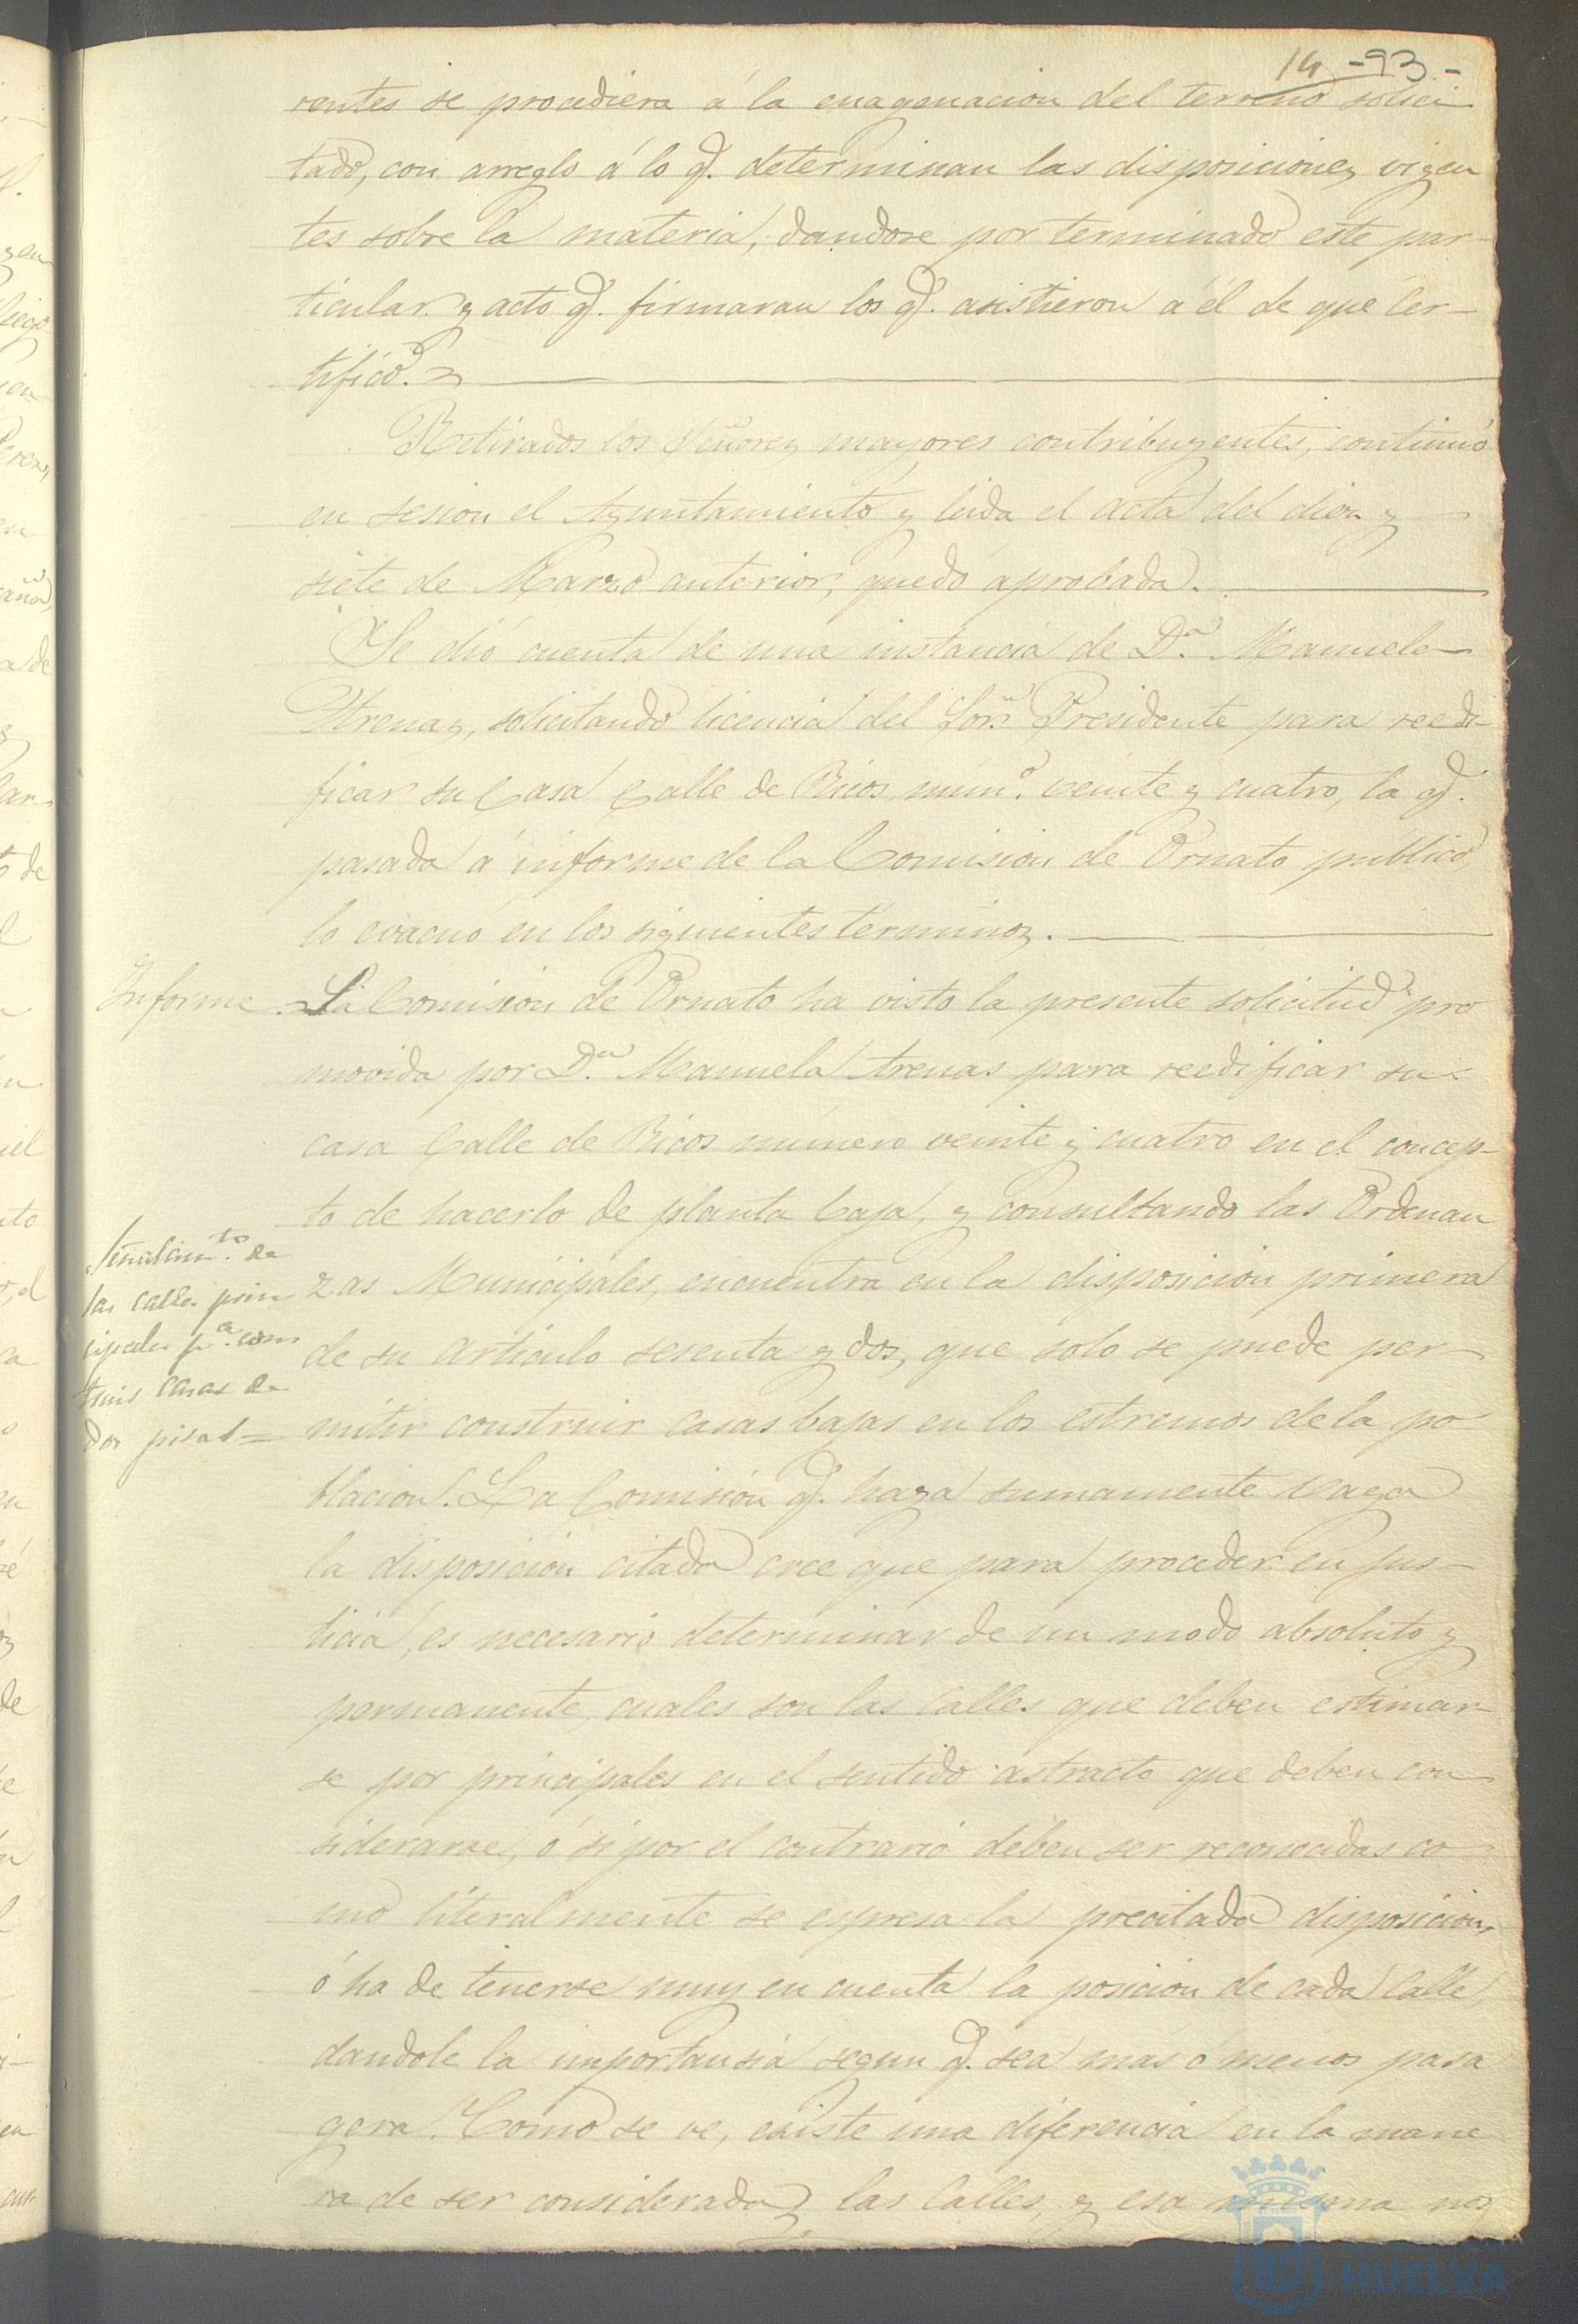 14 -93-
rentes se procediera á la enagenacion del terreno solici
tado, con arreglo á lo q. determinan las disposiciones vigen
tes sobre la materia, dandose por terminado este par-
ticular y acto q. firmaran los q. asistieron a él de que cer-
tifico.
Retirados los Señores mayores contribuyentes, continuó
en sesion el Ayuntamiento y leida el acta del diez y
siete de Marzo anterior, quedó aprobada.
Se dió cuenta de una instancia de D.ª Manuela
Arenas, solicitando licencia del Sor. Presidente para reedi-
ficar su Casa Calle de Ricos núm.º veinte y cuatro, la q.
pasada á informe de la Comision de Ornato público,
lo evacuó en los siguientes terminos.
Informe. La Comision de Ornato ha visto la presente solicitud pro
movida por D.ª Manuela Arenas para reedificar su
casa Calle de Ricos número veinte y cuatro en el concep-
to de hacerlo de planta baja, y consultando las Ordenan
zas Municipales, encuentra en la disposicion primera
de su articulo sesenta y dos, que solo se puede per-
mitir construir casas bajas en los estremos de la po
blacion. La Comisión q. haya sumamente vaga
la disposicion citada cree que para proceder en jus-
ticia, es necesario determinar de un modo absoluto y
permanente, cuales son las Calles que deben estimar-
se por principales en el sentido astracto que deben con
siderarse, ó si por el contrario deben ser reconocidas co
mo literalmente se espresa la precitada disposicion,
ó ha de tenerse muy en cuenta la posicion de cada Calle,
dandole la importansia segun q. sea mas ó menos pasa
gera. Como se ve, existe una diferencia en la mane
ra de ser consideradas las Calles, y esa misma nos
Señalam.to de
las calles prin
cipales p.ª cons
truir casas de
dos pisos=
HUELVA